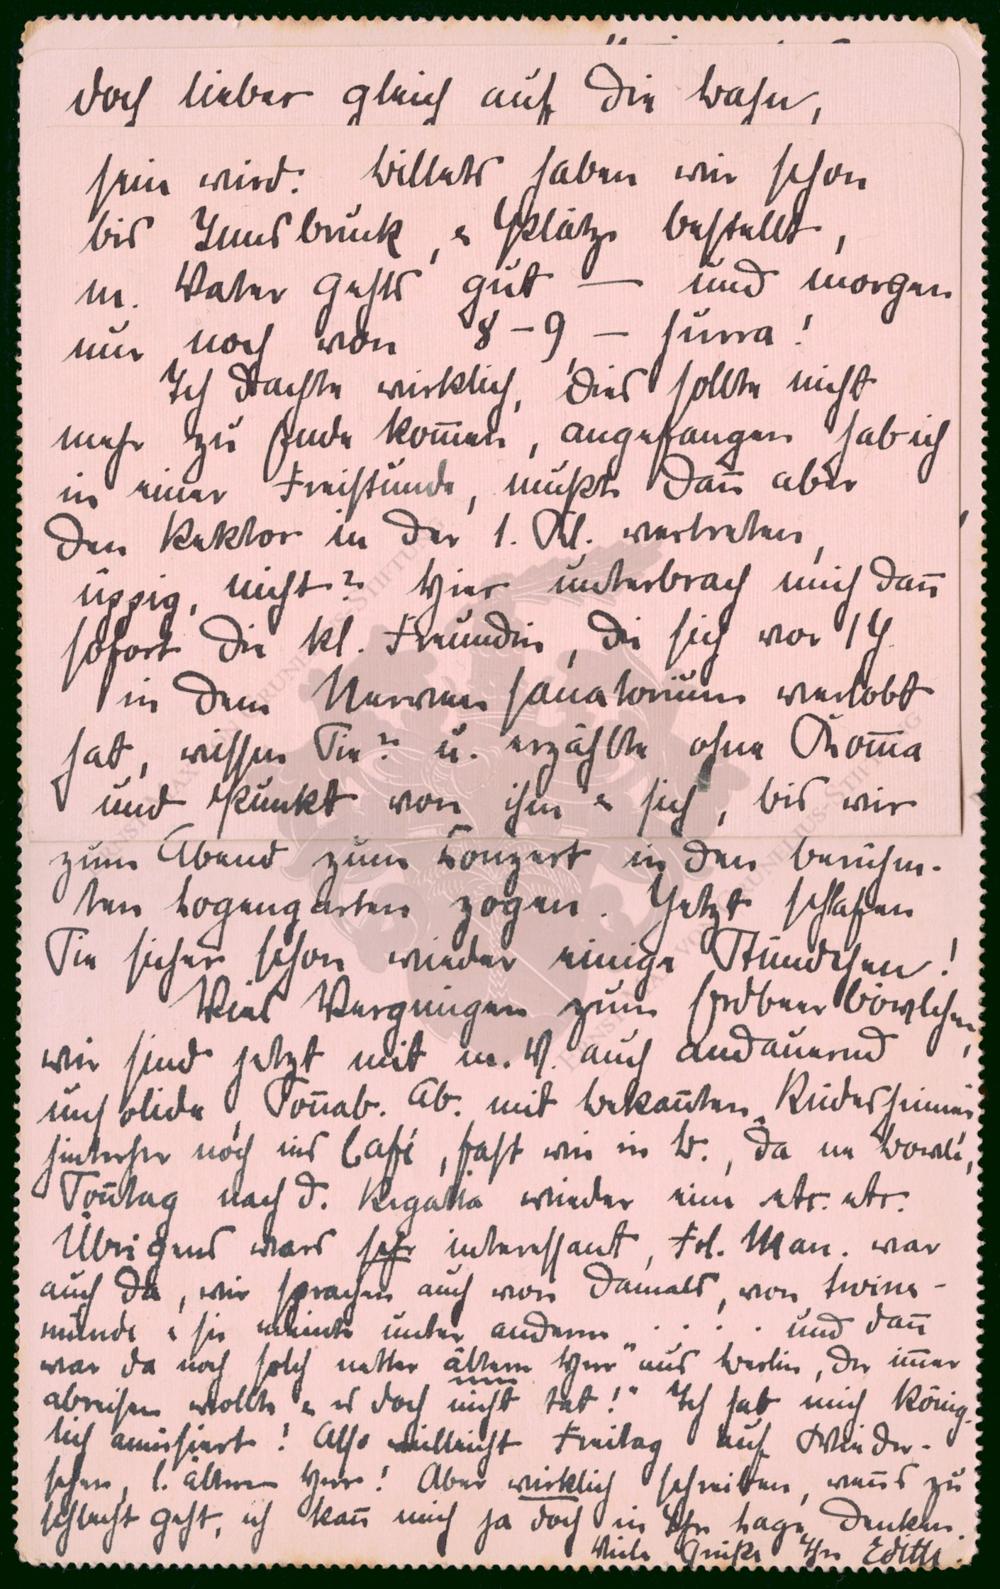 doch lieber gleich auf die Bahn,
sein wird. Billets haben wir schon
bis Innsbruck, & Plätze bestellt,
m. Vater gehts gut — und morgen
nur noch von 8-9 — hurra!
Ich dachte wirklich, dies sollte nicht
mehr zu Ende kom̄en, angefangen hab ich
in einer Freistunde, mußte dan̄ aber
den Rektor in der 1. Kl. vertreten,
üppig, nicht? Hier unterbrach mich dan̄
sofort die kl. Freundin, die sich vor 14
in dem Nervensanatorium verlobt
hat, wissen Sie? u. erzählte ohne Kom̄a
und Punkt von ihm & sich, bis wir
zum Abend zum Konzert in den berühm-
ten Logengarten zogen. Jetzt schlafen
Sie sicher schon wieder einige Stündchen!
Viel Vergnügen zum Erdbeerböwlchen,
wir sind jetzt mit m. V. auch andauernd
unsolide, Son̄ab. Ab. mit bekan̄ten Rüdesheimer
hinterher noch ins Café, fast wie in B., da ne Bowle,
Son̄tag nach d. Regatta wieder eine etc. etc.
Übrigens wars sehr interessant, Frl. Man. war
auch da, wir sprachen auch von damals, von Swine-
münde & sie meinte unter anderm . . . . . und dan̄
war da noch solch netter älterer Herr" aus Berlin, der im̄er
abreisen wollte & es doch nicht tat!" Ich hab mich könig-
lich amüsiert! Also vielleicht Freitag auf Wieder-
sehen, l. älterer Herr! Aber wirklich schreiben, wen̄s zu
schlecht geht, ich kan̄ mich ja doch in Ihre Lage denken.
Viele Grüße Ihre Edith.